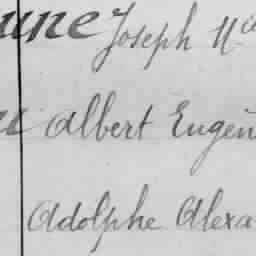 Joseph
Albert Eugèn
Adolphe Alexa